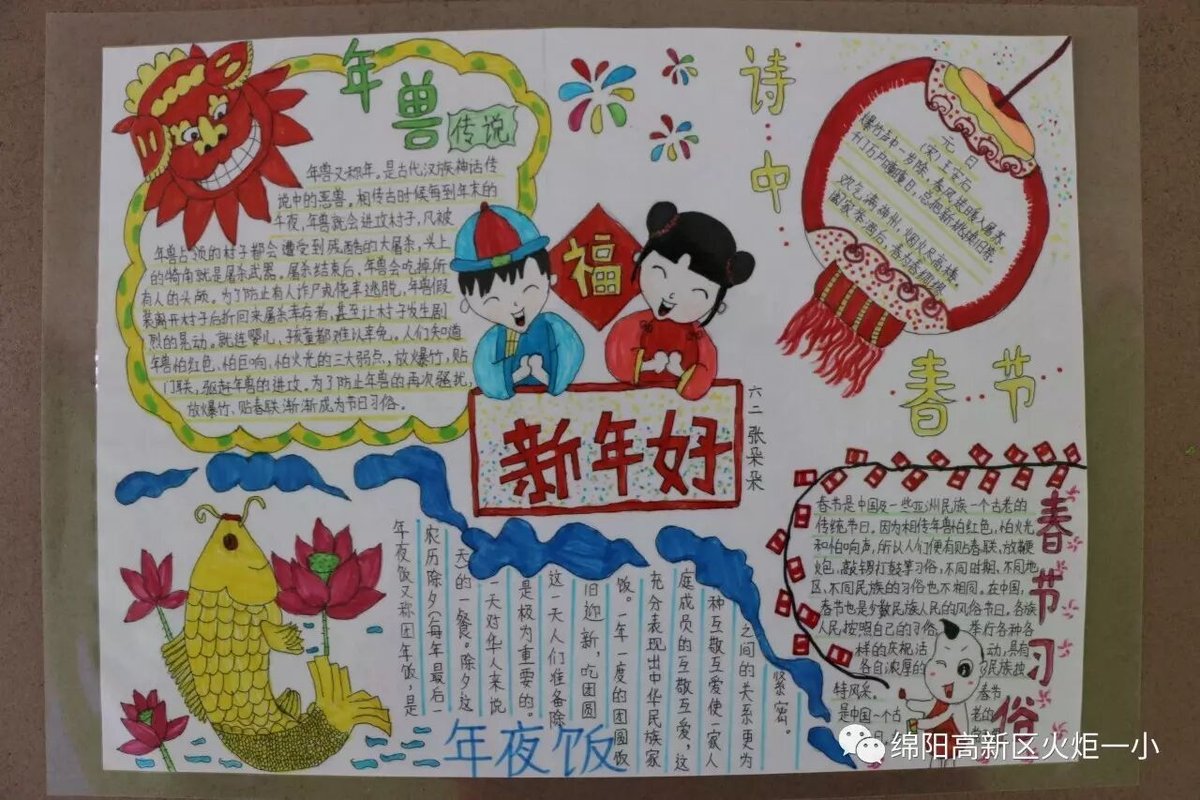 年兽
传说
年兽又称年,是古代汉族神话传
说中的恶兽。相传古时候每到年末的
午夜,年兽就会进攻村子,凡被
年兽占领的村子都会遭受到残酷的大屠杀,头上
的犄角就是屠杀武器。屠杀结束后,年兽会吃掉所
有人的头颅。为了防止有人诈尸或侥幸逃脱,年兽假
装离开村子后折回来屠杀幸存者,甚至让村子发生剧
烈的晃动。就连婴儿,孩童都难以幸免。人们知道
年兽怕红色、怕巨响、怕火光的三大弱点,放爆竹,贴
门联,驱赶年兽的进攻。为了防止年兽的再次骚扰,
放爆竹、贴春联渐渐成为节日习俗。
诗中
春节
元日
(宋)王安石
爆竹声中一岁除,春风送暖入屠苏
千门万户曈曈日,总把新桃换旧符
欢乞满神州,烟火尽高楼
福
新年好
六二张朵朵
年夜饭又称团年饭,是
农历除夕(每年最后一
天)的一餐。除夕这
一天对华人来说
是极为重要的。
这一天人们准备除
旧迎新,吃团圆
饭。一年一度的团圆饭
充分表现出中华民族家
庭成员的互敬互爱,这
种互敬互爱使一家人
之间的关系更为
紧密。
年夜饭
春节习俗
春节是中国及一些亚洲民族一个古老的
传统节日。因为相传年兽怕红色,怕火光
和怕响声,所以人们便有贴春联、放鞭
炮、敲锣打鼓等习俗,不同时期、不同地
区、不同民族的习俗也不相同。在中国,
春节也是少数民族人民的风俗节日。各族
人民按照自己的习俗,举行各种各
样的庆祝活动,具有
各自浓厚的民族独
特风采。春节
是中国一个古老的
绵阳高新区火炬一小